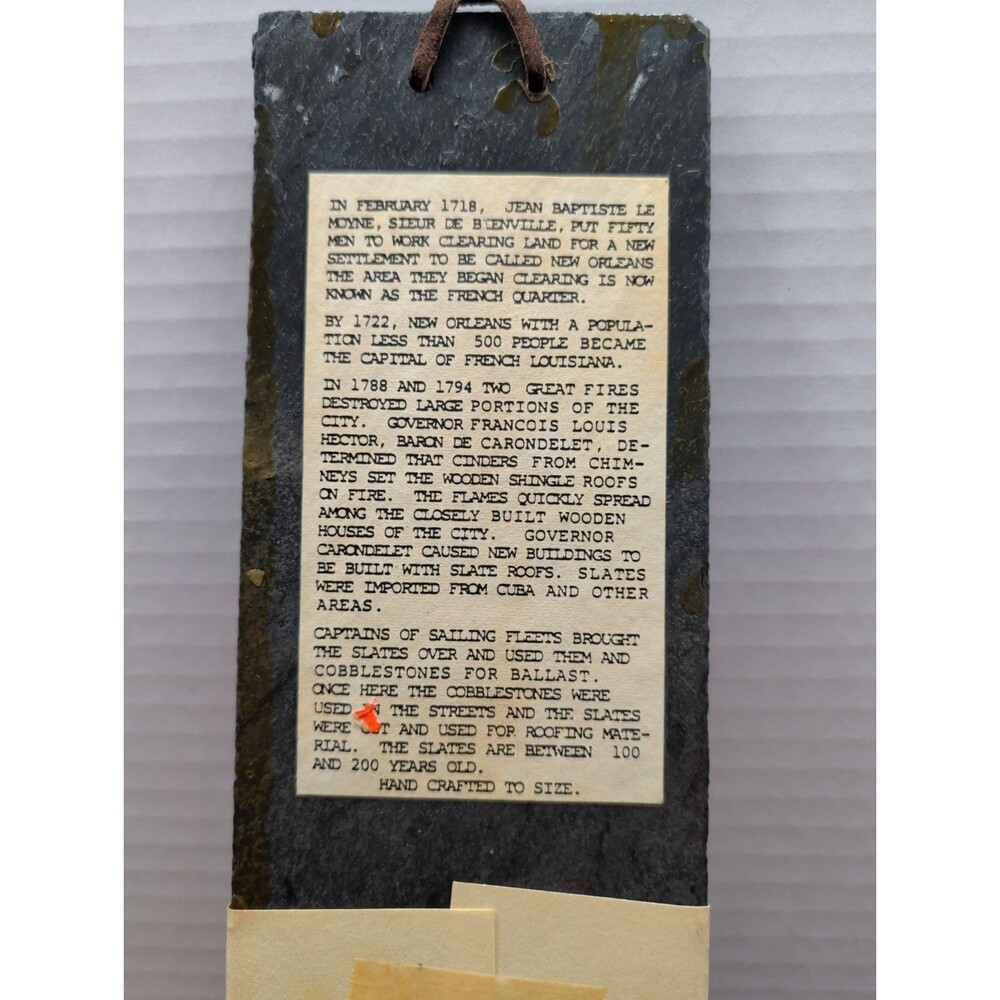 IN FEBRUARY 1718, JEAN BAPTISTE LE
MOYNE, SIEUR DE BIENVILLE, PUT FIFTY
MEN TO WORK CLEARING LAND FOR A NEW
SETTLEMENT TO BE CALLED NEW ORLEANS
THE AREA THEY BEGAN CLEARING IS NOW
KNOWN AS THE FRENCH QUARTER.
BY 1722, NEW ORLEANS WITH A POPULA-
TION LESS THAN 500 PEOPLE BECAME
THE CAPITAL OF FRENCH LOUISIANA.
IN 1788 AND 1794 TWO GREAT FIRES
DESTROYED LARGE PORTIONS OF THE
CITY. GOVERNOR FRANCOIS LOUIS
HECTOR, BARON DE CARONDELET, DE-
TERMINED THAT CINDERS FROM CHIM-
NEYS SET THE WOODEN SHINGLE ROOFS
ON FIRE. THE FLAMES QUICKLY SPREAD
AMONG THE CLOSELY BUILT WOODEN
HOUSES OF THE CITY. GOVERNOR
CARONDELET CAUSED NEW BUILDINGS TO
BE BUILT WITH SLATE ROOFS. SLATES
WERE IMPORTED FROM CUBA AND OTHER
AREAS.
CAPTAINS OF SAILING FLEETS BROUGHT
THE SLATES OVER AND USED THEM AND
COBBLESTONES FOR BALLAST.
ONCE HERE THE COBBLESTONES WERE
USED IN THE STREETS AND THE SLATES
WERE CUT AND USED FOR ROOFING MATE-
RIAL. THE SLATES ARE BETWEEN 100
AND 200 YEARS OLD.
HAND CRAFTED TO SIZE.